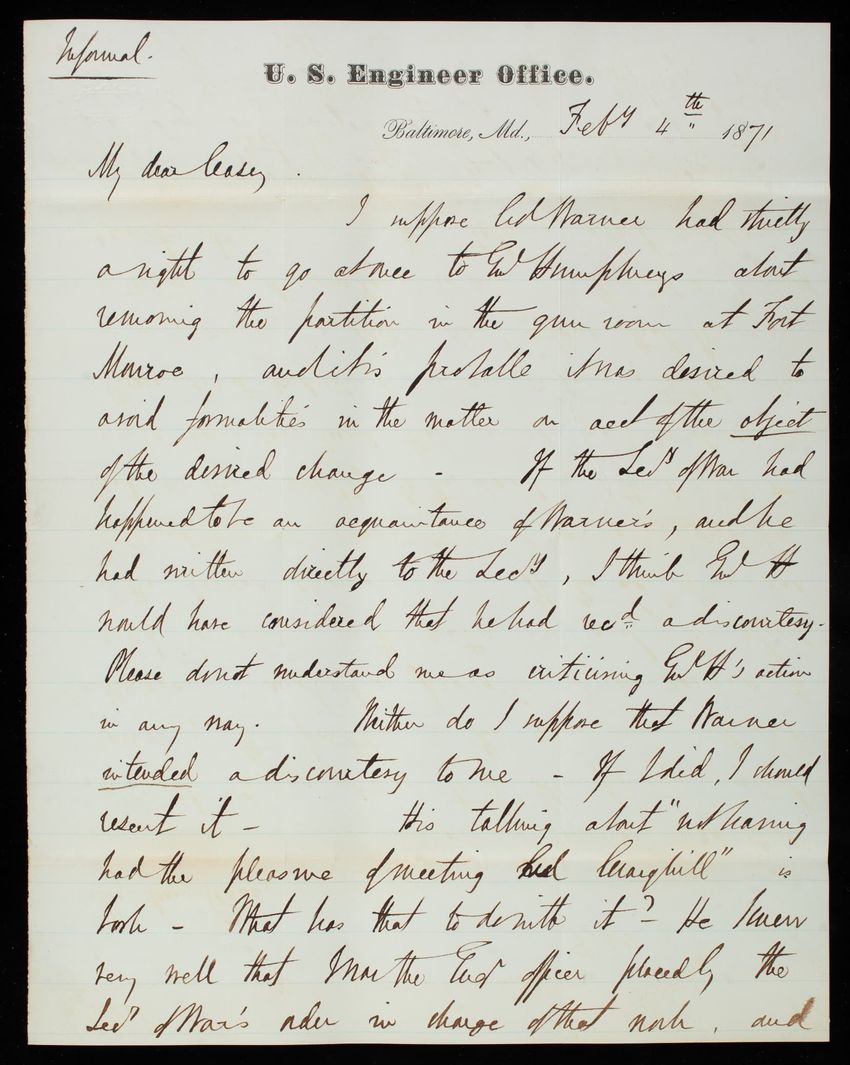 Informal.
U. S. Engineer Office.
Baltimore, Md., Feby 4th 1871
My dear Casey.
I suppose Col Warner had strictly
a right to go at once to Genl Humphreys about
removing the partition in the gun room at Fort
Monroe, and it is probable it was desired to
avoid formalities in the matter on acct of the object
of the desired change - If the Secy of War had
happened to be an acquaintance of Warner's, and he
had written directly to the Secy, I think Genl H
would have considered that he had recd a discourtesy-
Please do not understand me as criticising Genl H's action
in any way. Neither do I suppose that Warner
intended a discourtesy to me - If I did, I should
resent it - His talking about "not having
had the pleasure of meeting Col Craighill" is
bosh - What has that to do with it? - He knew
very well that I was the Engr officer placed by the
Secy of War's order in charge of that work, and